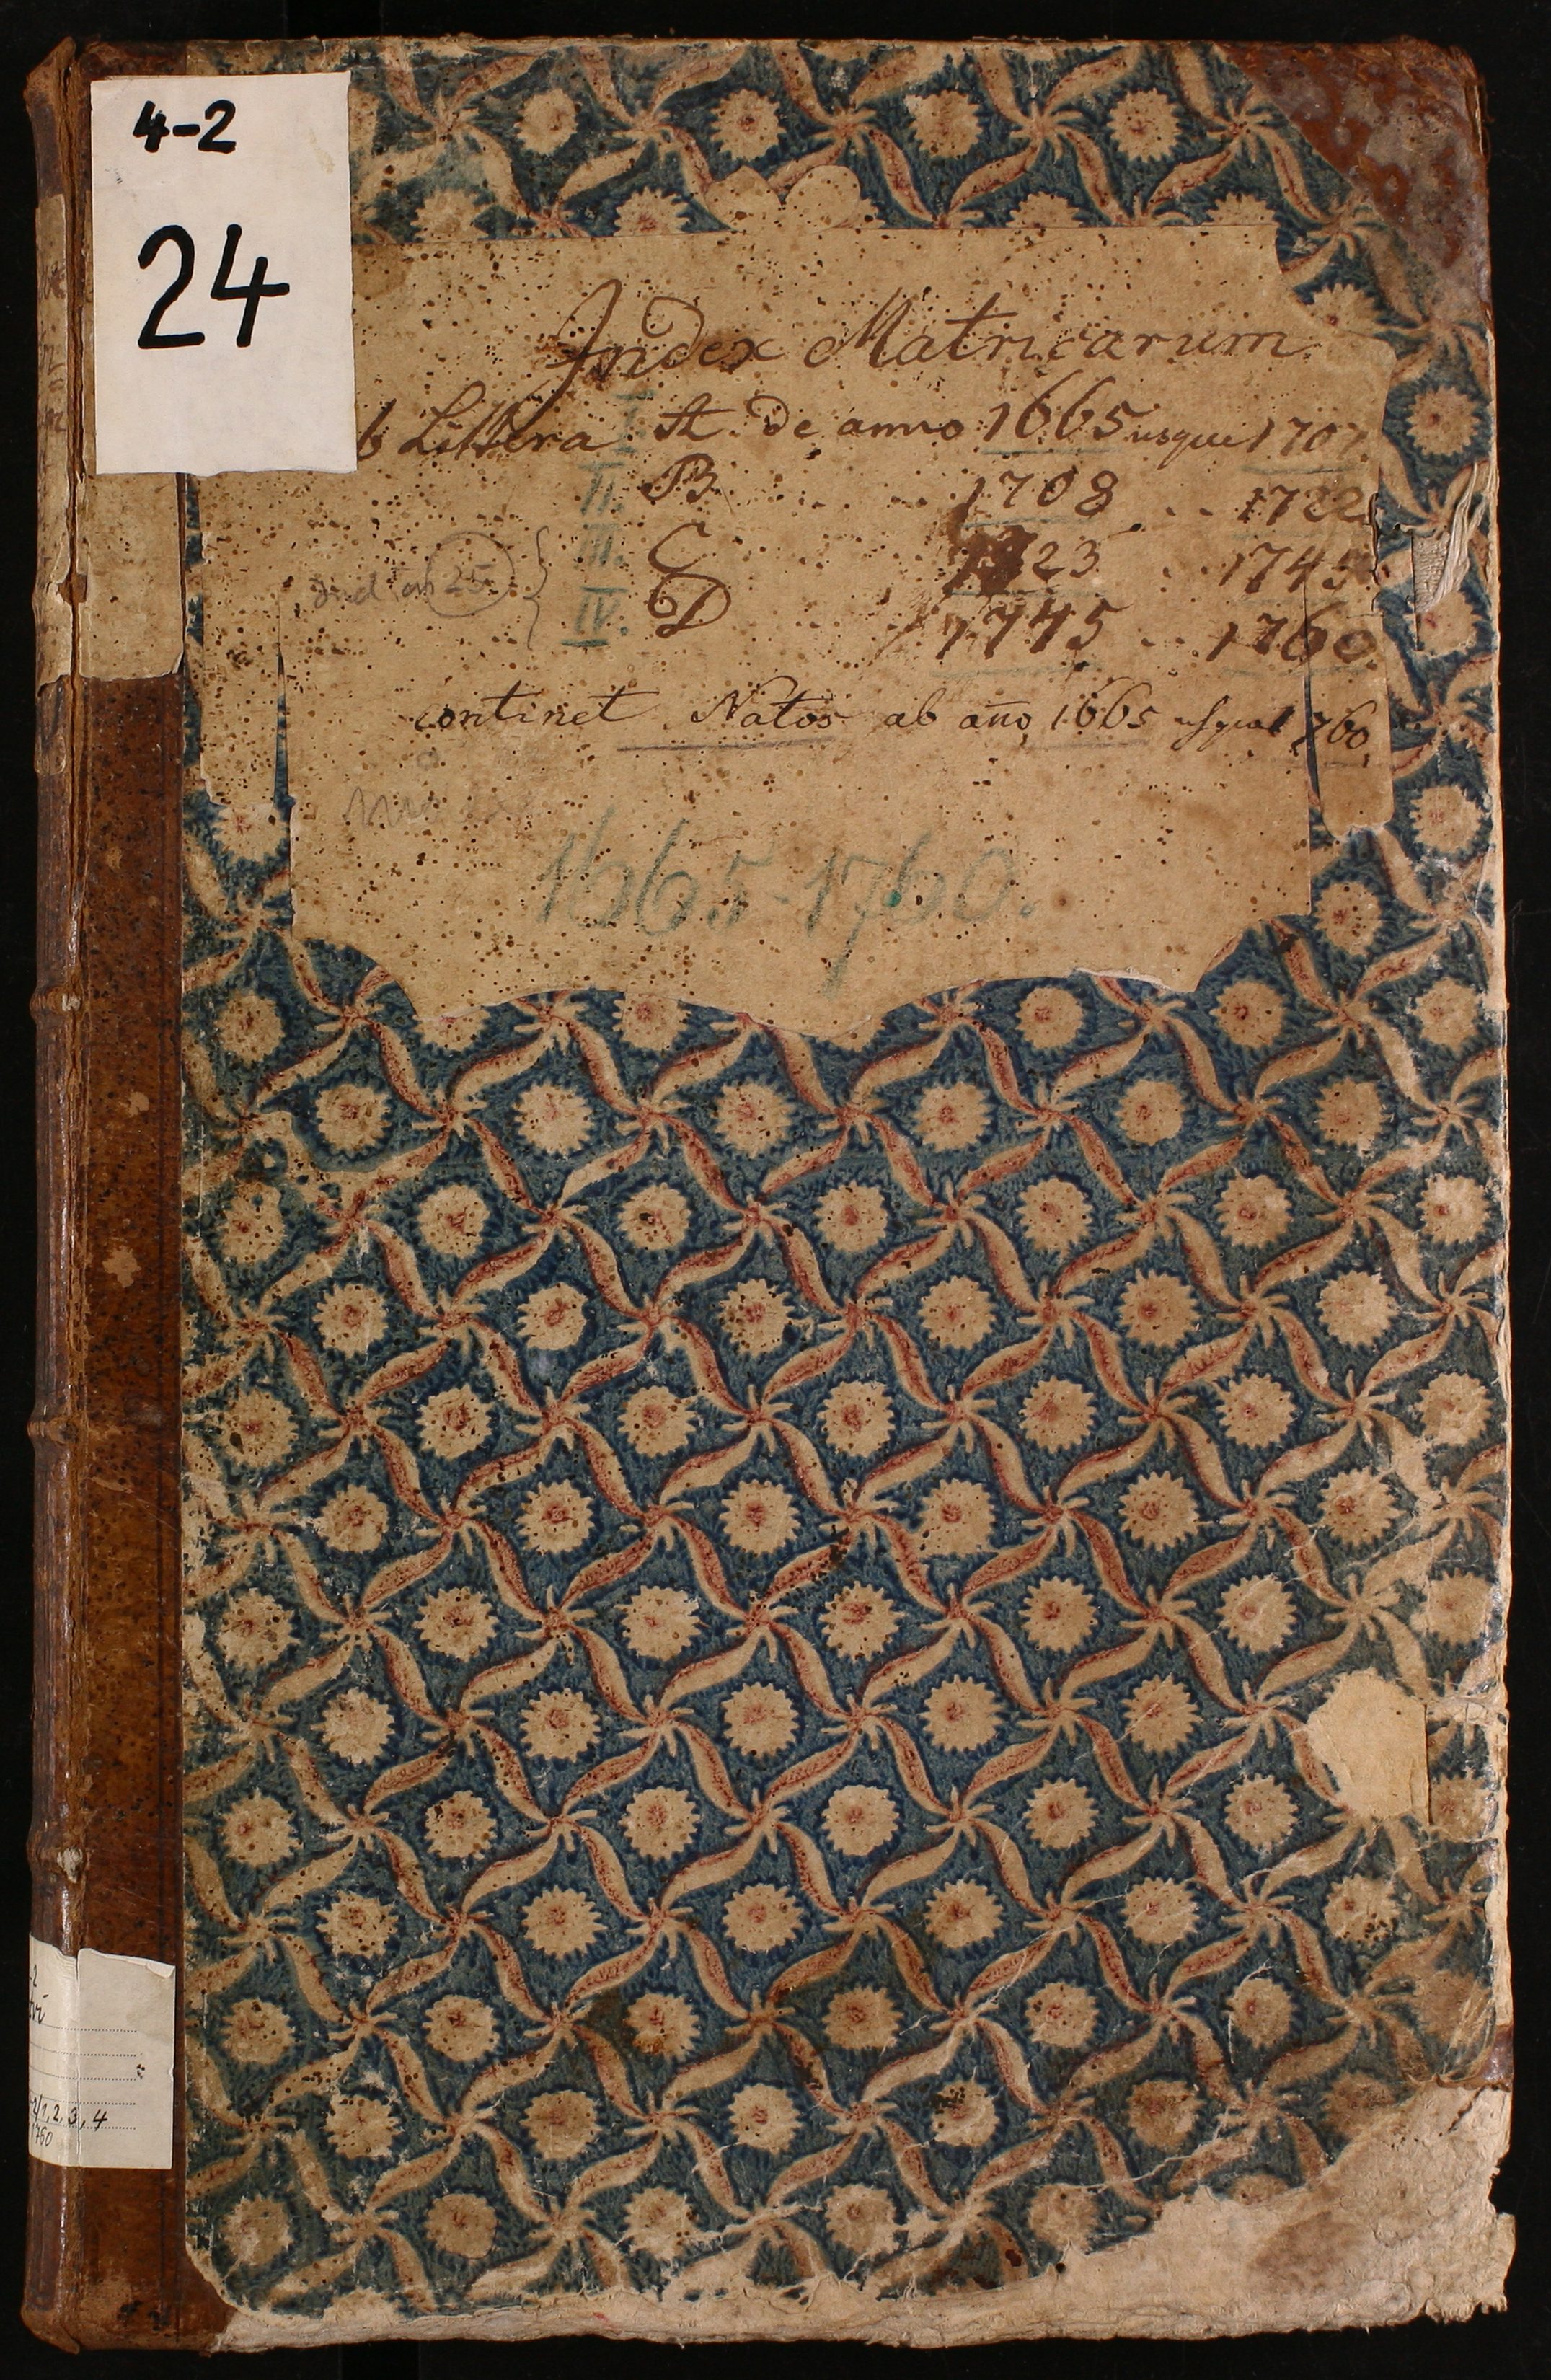 4-2
24
Index Matricarum
b Littera I. A. De anno 1665 usque 1707.
II. B. . . . . . 1708 . . 1722
III. C 1723 . 1745
25 IV. D . . . 1745 . . 1760.
continet Natos ab año 1665 usque 1760
1665-1760.
-2
-2/1, 2, 3, 4
1760